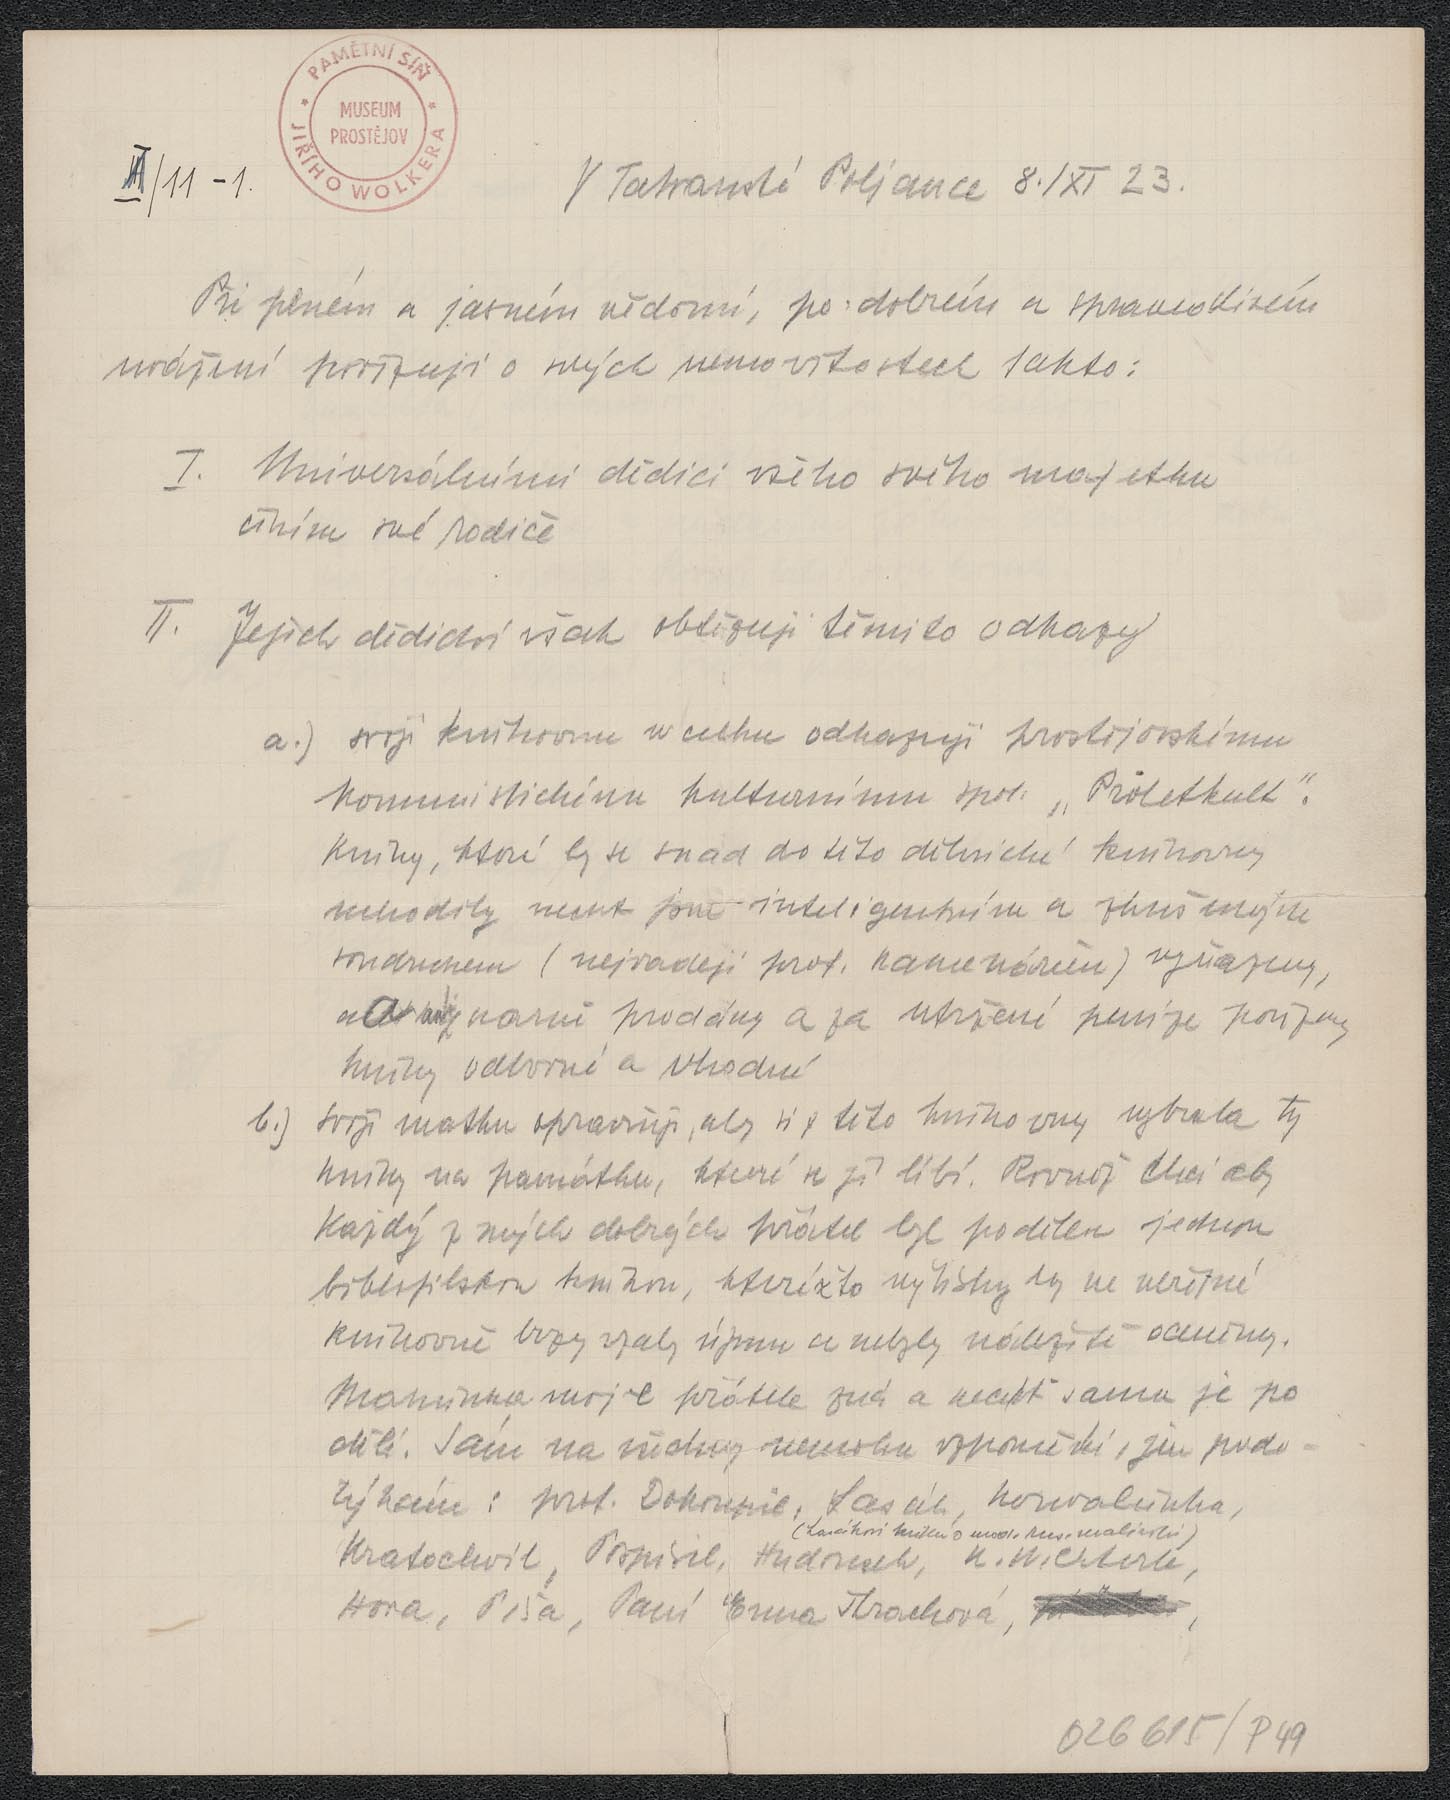 PAMĚTNÍ SÍŇ JIŘÍHO WOLKERA
MUSEUM
PROSTĚJOV
III/11 - 1.
V Tatranské Poljance 8./XI 23.
Při plném a jasném vědomí, po dobrém a spravedlivém
uvážení pořizuji o svých nemovitostech takto:
I. Universálními dědici všeho svého majetku
činím své rodiče
II. Jejich dědictví však obtěžuji těmito odkazy
a.) svoji knihovnu v celku odkazuji prostějovskému
komunistickému kulturnímu spol. „Proletkult".
Knihy, které by se snad do této dělnické knihovny
nehodily necht jsou inteligentním a zkušeným
soudruhem (nejraději prof. Kameníčkem) vyřazeny,
narně prodány a za utržené peníze pořízeny
knihy odborné a vhodné
b.) svoji matku opravňuji, aby si z této knihovny vybrala ty
knihy na památku, které se jí líbí. Rovněž chci aby
Každý z mých dobrých přátel byl podělen jednou
bibliofilskou knihou, kteréžto výtisky by ve veřejné
knihovně brzy vzaly újmu a nebyly náležitě oceněny.
Maminka moje přátele zná a nechť sama je po
dělí. Sám na všechny nemohu vzpomenouti, jen podo-
týkám: prof. Dokoupil, Lasák, Kowalinka,
(Lasákovi knihu o mod. rus. malířství)
Kratochvil, Pospíšil, Hudousek, K. Wichterle,
Hora, Píša, Paní Ema Strachová,
026 615/P49